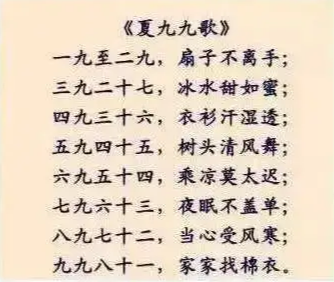 《夏九九歌》
一九至二九，扇子不离手；
三九二十七，冰水甜如蜜；
四九三十六，衣衫汗湿透；
五九四十五，树头清风舞；
六九五十四，乘凉莫太迟；
七九六十三，夜眠不盖单；
八九七十二，当心受风寒；
九九八十一，家家找棉衣。